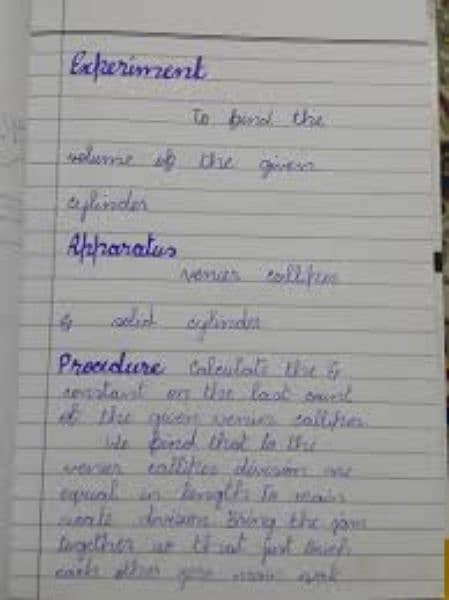 Experiment
To find the
volume of the given
cylinder
Apparatus
vernier callipes
& solid cylinder
Procedure Calculate the &
constant on the last count
of the given vernier calliper
We find that to the
vernier calliper division are
equal in length to main
scale division Bring the jaw
together so that just touch
each other your main